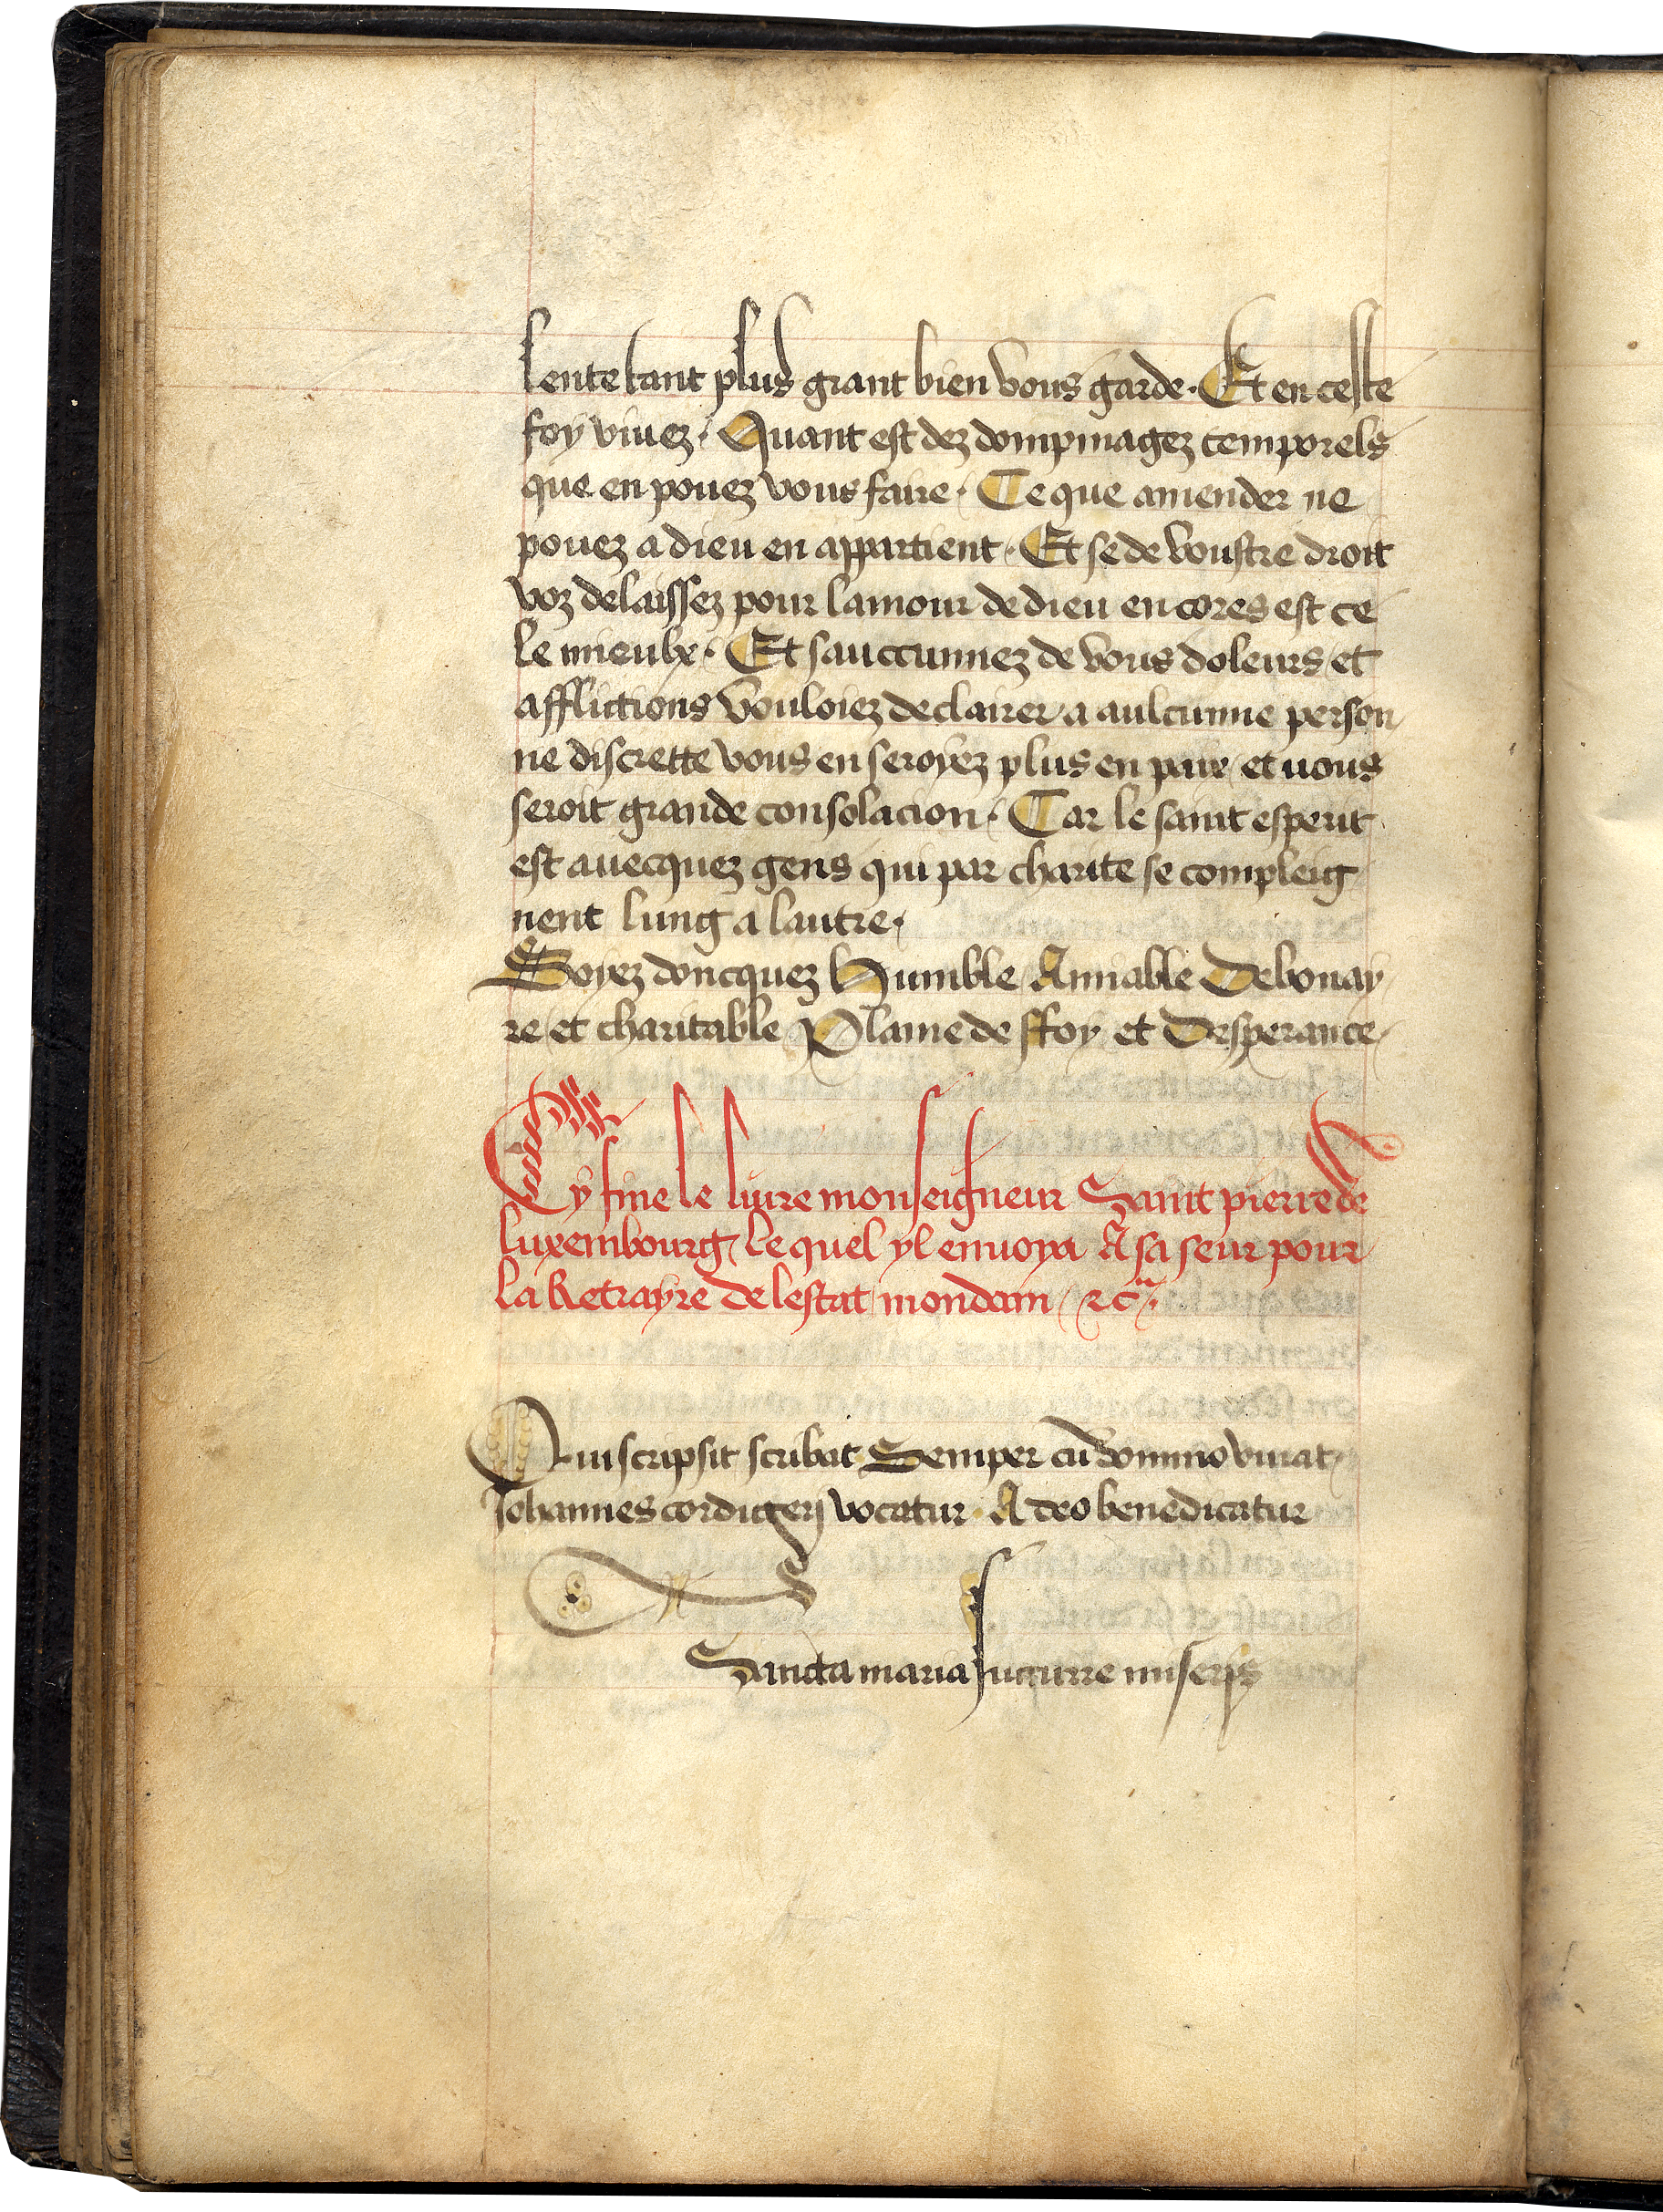 lente tant plus grant bien vous garde. Et en ceste
foy viuez. Quant est dez dompmagez temporels
que en pouez vous faire. Ce que amender ne
pouez a dieu en appartient. Et se de voustre droit
voz delaissez pour lamour de dieu encores est ce
le mieulx. Et sauccunnez de vous doleurs et
afflictions vouloiez declairer a aulcunne person
ne discrette vous en seroyez plus en paix et vous
seroit grande consolacion. Car le saint esperit
est auecquez gens qui par charite se compleig
nent lung a lautre.
Soyez doncquez Humble Amiable Debonay
re et charitable Plaine de ffoy et Desperance
Cy fine le liure monseigneur Saint pierre de
luxembourg lequel yl enuoya A sa seur pour
la Retrayre de lestat mondain &c.
Qui scripsit scribat Semper cū domino viuat
Johannes cordigerij vocatur A deo benedicatur
Sancta maria succurre miseris